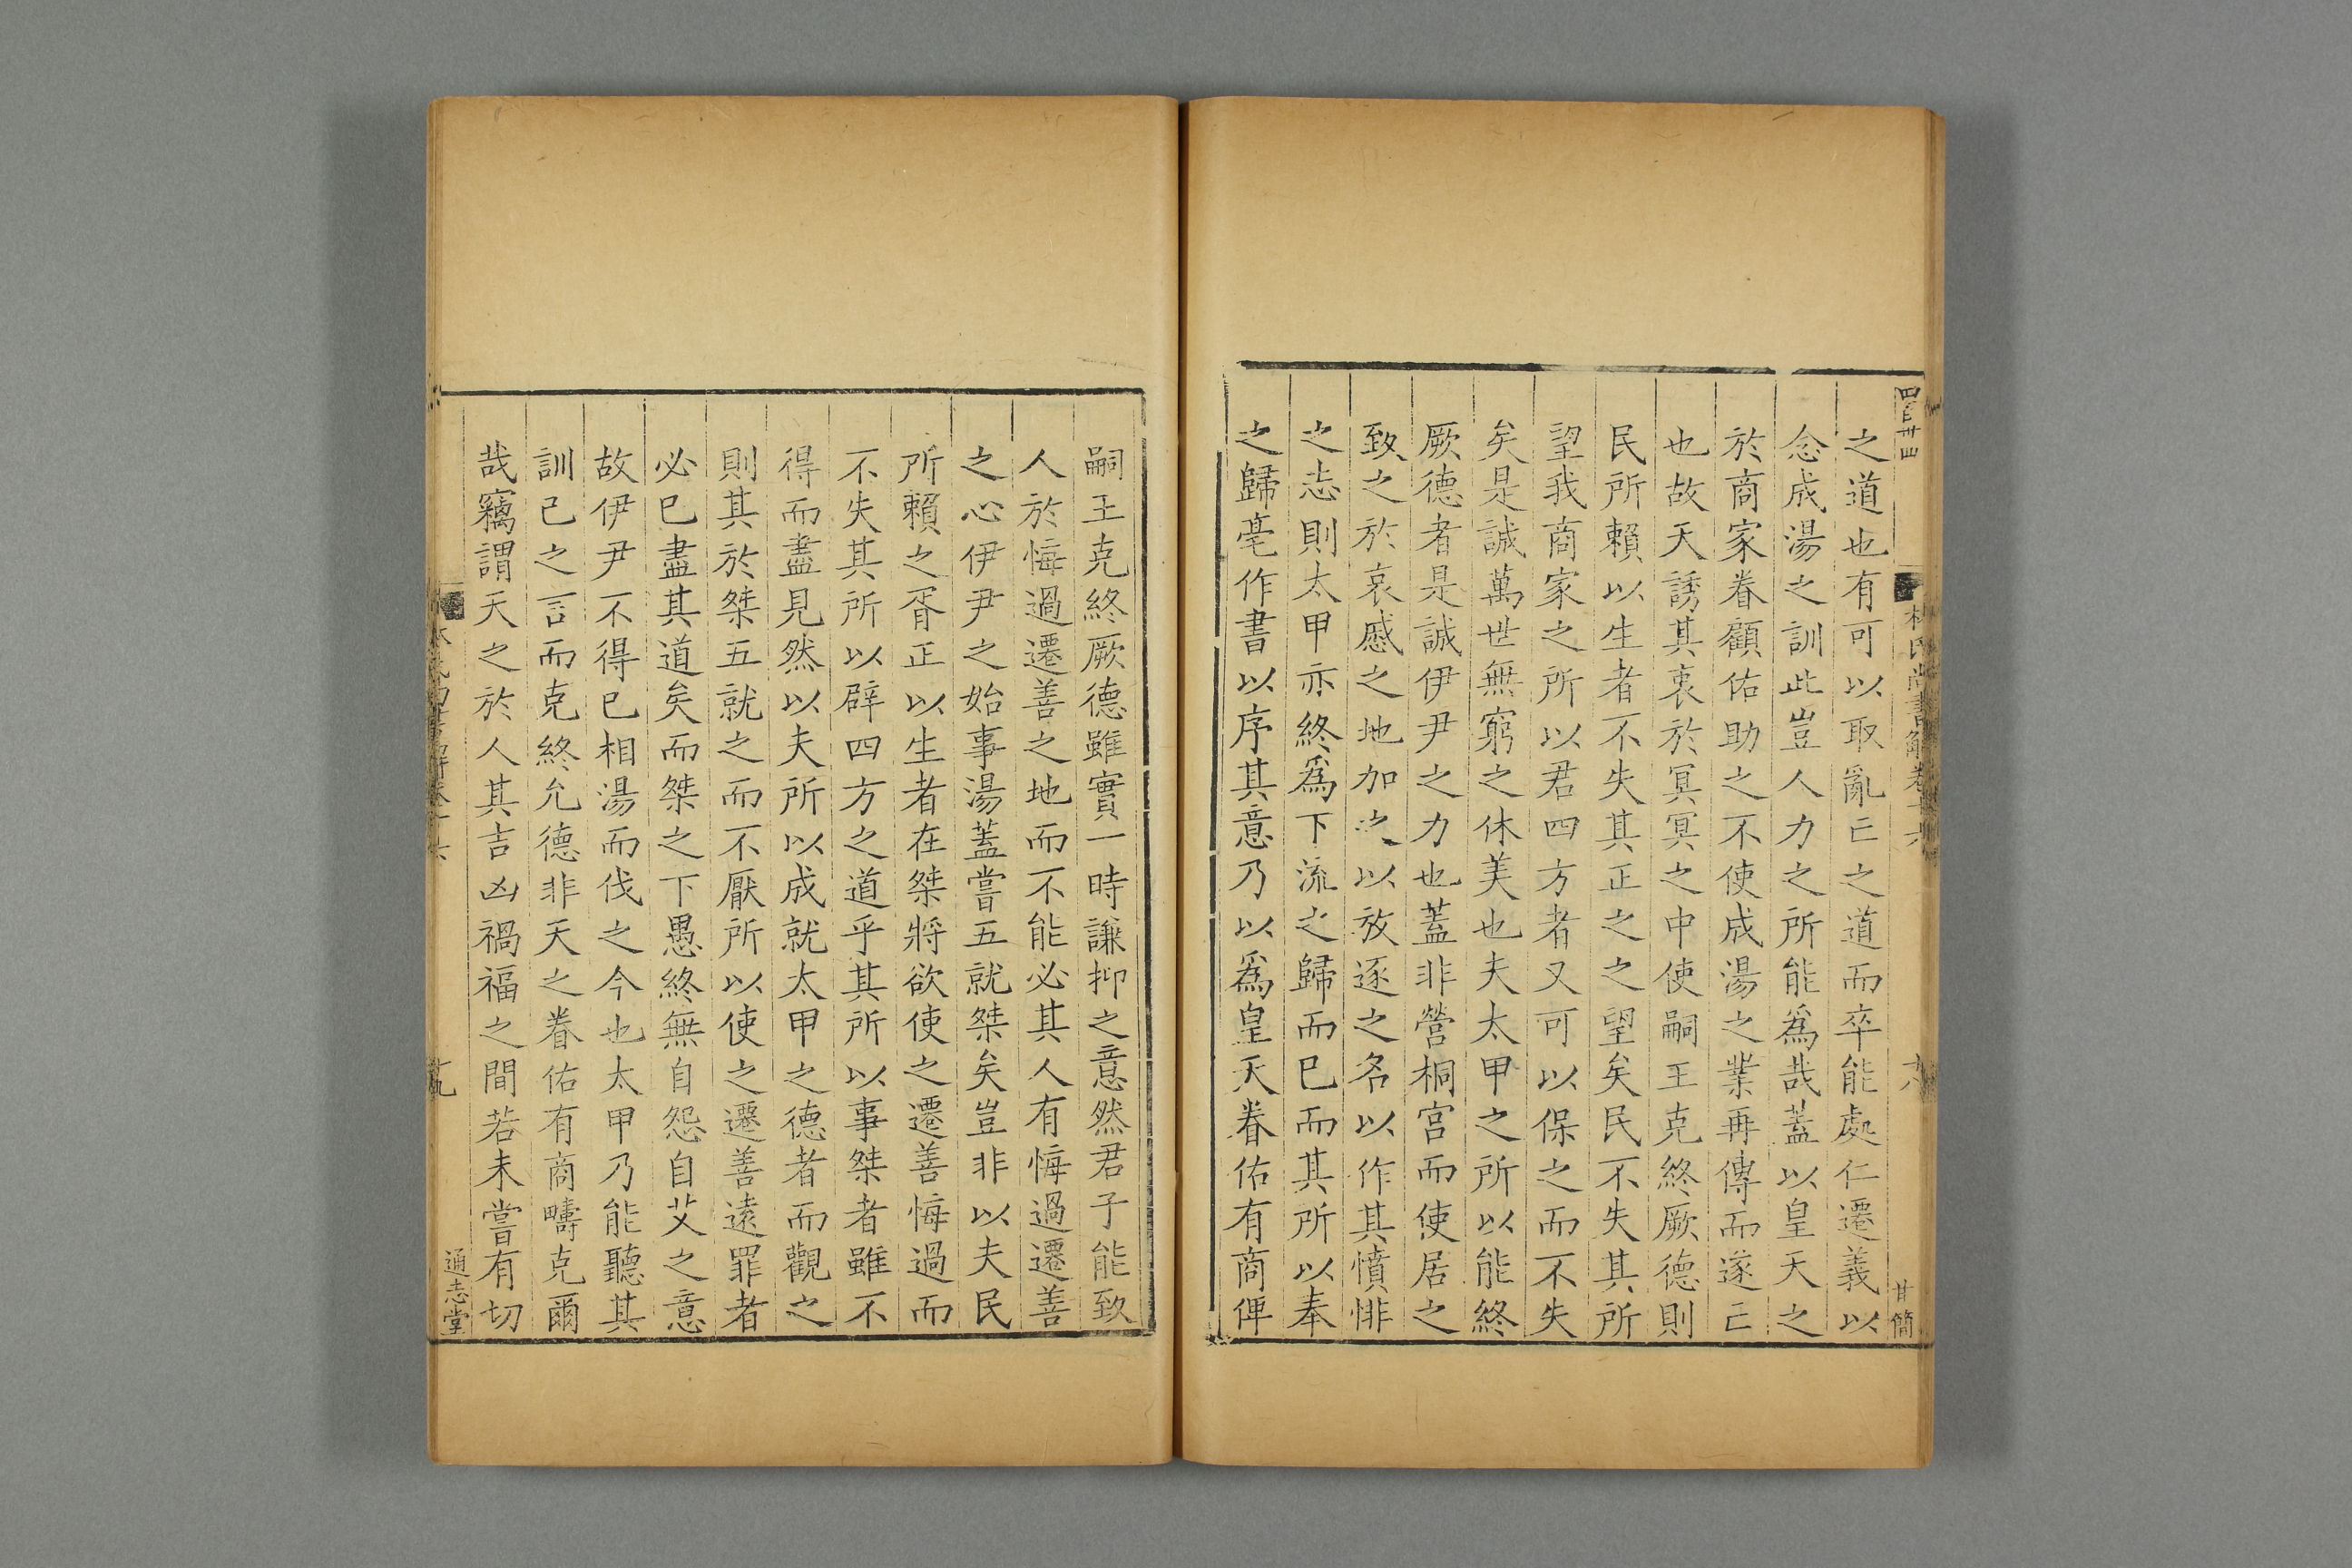 之道也有可以取亂亡之道而卒能處仁遷義以
念成湯之訓此豈人力之所能爲哉蓋以皇天之
於商家眷顧佑助之不使成湯之業再傳而遂亡
也故天誘其衷於冥冥之中使嗣王克終厥德則
民所賴以生者不失其正之之望矣民不失其所
望我商家之所以君四方者又可以保之而不失
矣是誠萬世無窮之休美也夫太甲之所以能終
厥德者是誠伊尹之力也蓋非營桐宮而使居之
致之於哀慼之地加之以放逐之名以作其憤悱
之志則太甲亦終爲下流之歸而已而其所以奉
之歸亳作書以序其意乃以爲皇天眷佑有商俾
嗣王克終厥德雖實一時謙抑之意然君子能致
人於悔過遷善之地而不能必其人有悔過遷善
之心伊尹之始事湯蓋嘗五就桀矣豈非以夫民
所賴之胥正以生者在桀將欲使之遷善悔過而
不失其所以辟四方之道乎其所以事桀者雖不
得而盡見然以夫所以成就太甲之德者而觀之
則其於桀五就之而不厭所以使之遷善遠罪者
必已盡其道矣而桀之下愚終無自怨自艾之意
故伊尹不得已相湯而伐之今也太甲乃能聽其
訓己之言而克終允德非天之眷佑有商疇克爾
哉竊謂天之於人其吉凶禍福之間若未嘗有切
林氏尚書解卷十六
十八
甘簡
十九
通志堂